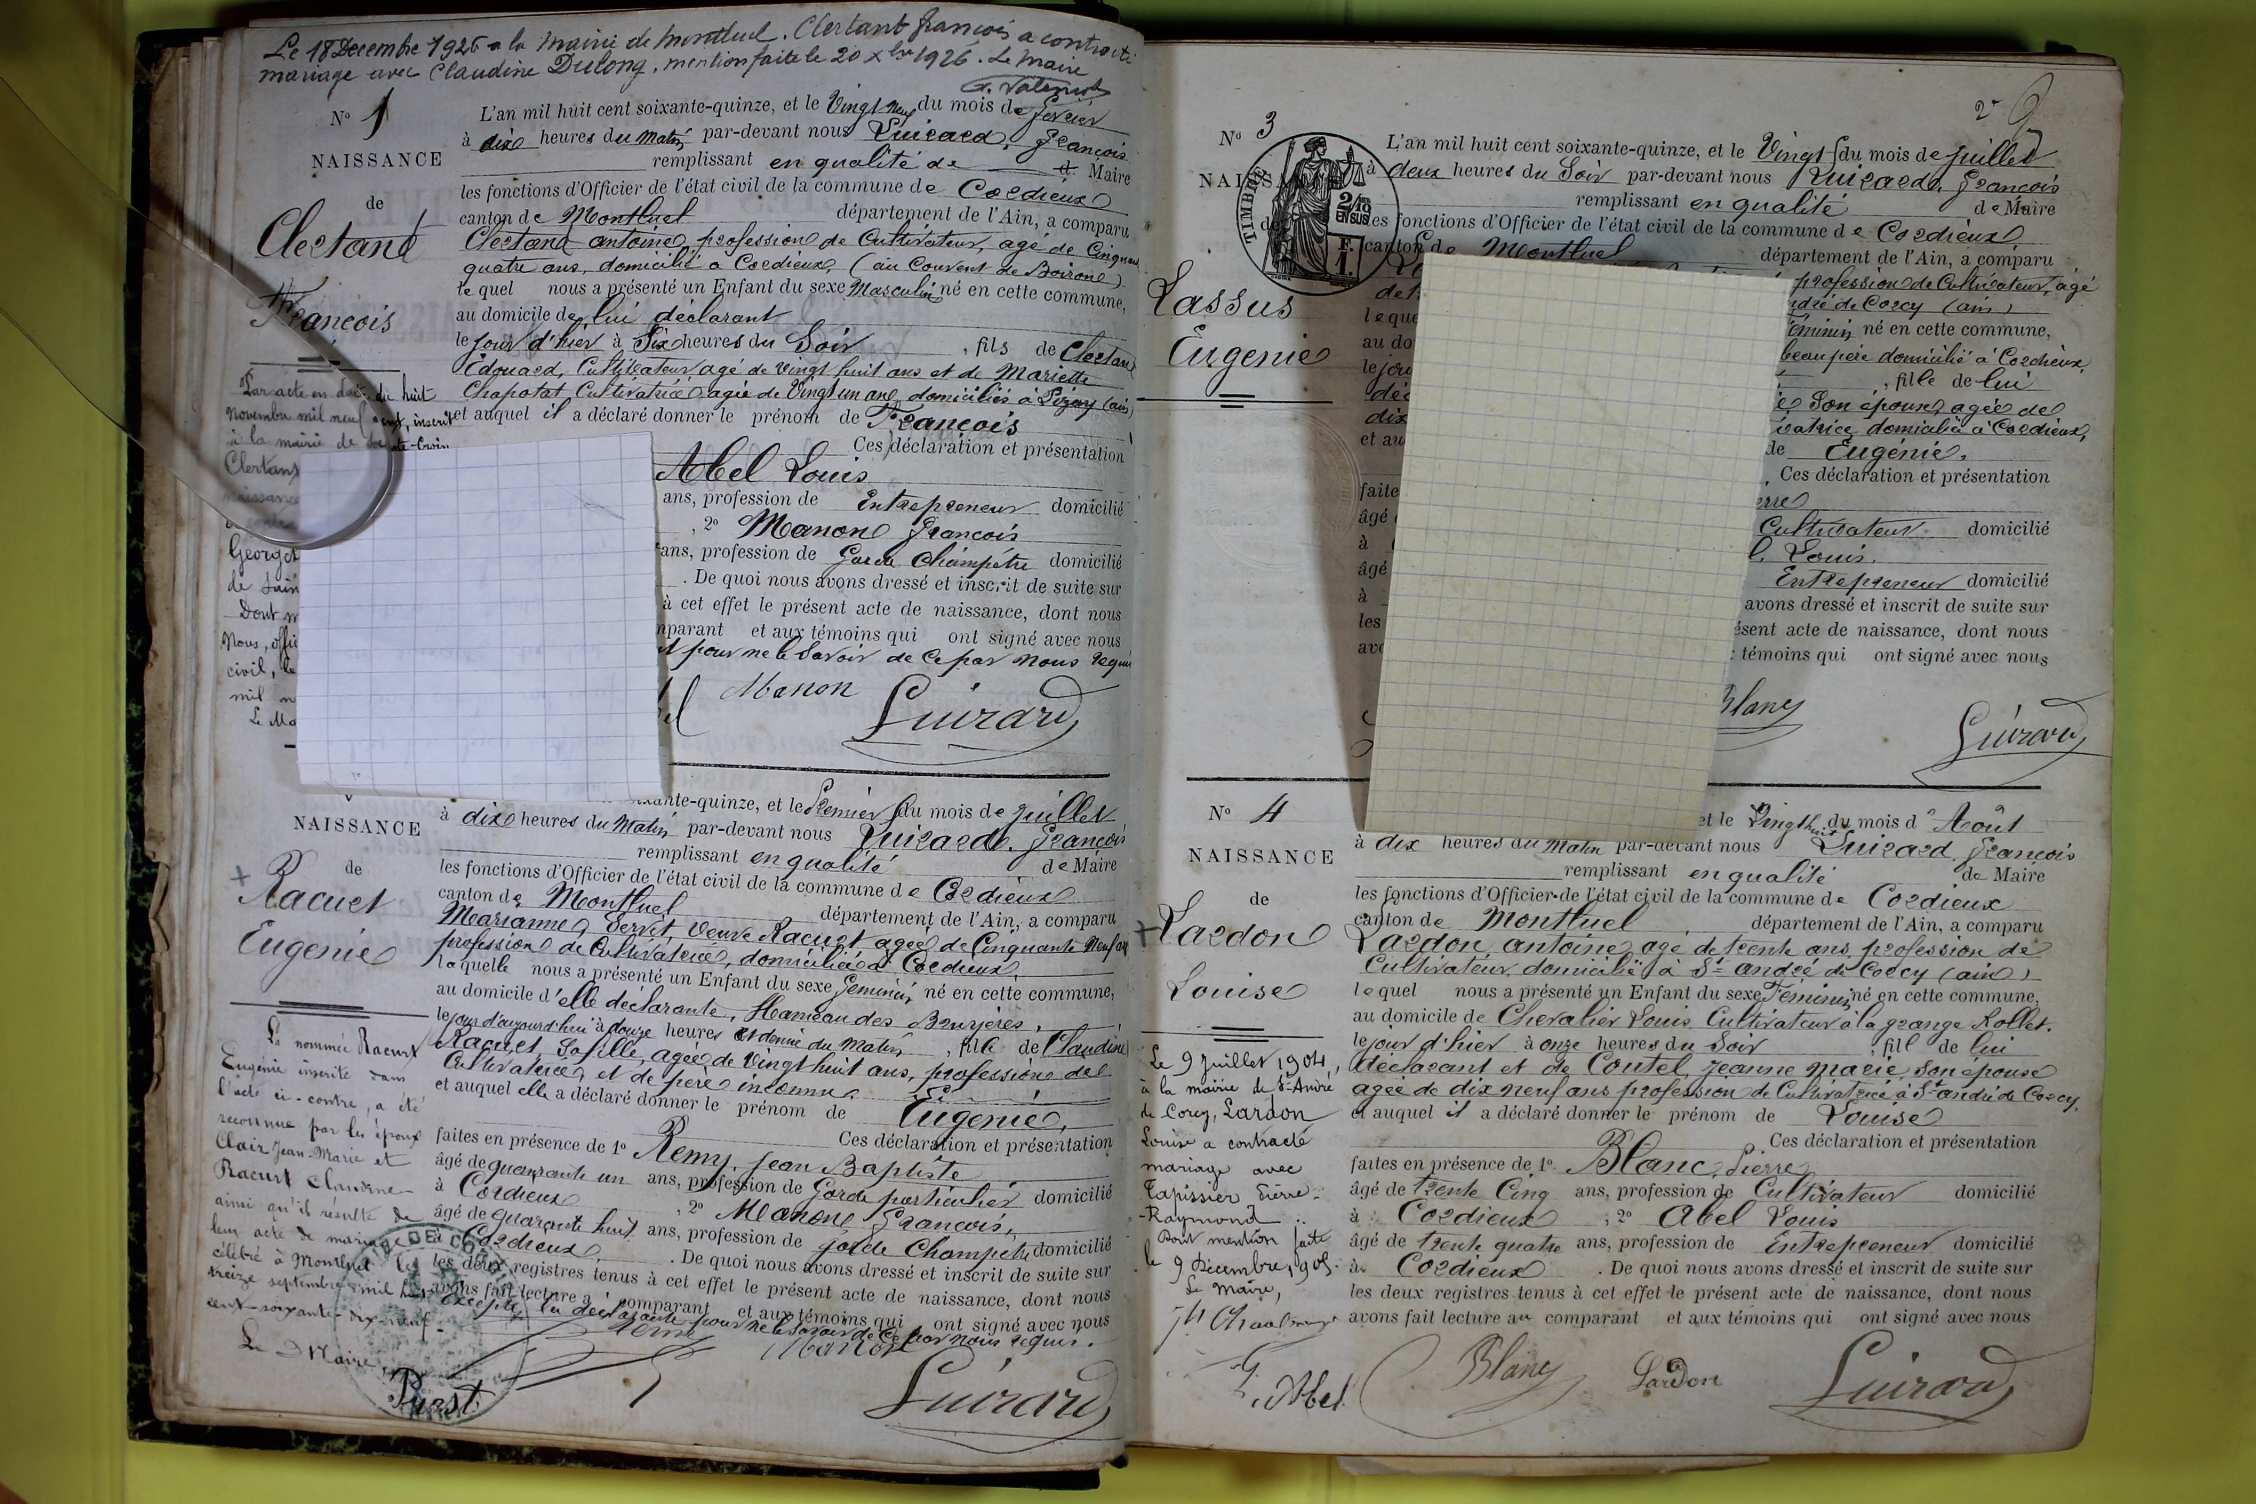 Le 18 Decembre 1926 a la Mairie de Montluel. Clertant François a contracté
mariage avec Claudine Dulong, mention faite le 20 Xbre 1926. Le Maire
N° 1
NAISSANCE
de
Clertant
François
L'an mil huit cent soixante-quinze, et le Vingt neuf du mois de fevrier
à dix heures du Matin par-devant nous Guirard, François
remplissant en qualité de d. Maire
les fonctions d'Officier de l'état civil de la commune de Cordieux
canton de Montluel département de l'Ain, a comparu
Clertant antoine, profession de Cultivateur, agé de Cinquante
quatre ans, domicilié a Cordieux, (au Couvent de Boirone)
le quel nous a présenté un Enfant du sexe Masculin né en cette commune,
au domicile de lui déclarant
le jour d'hier à Six heures du Soir , fils de Clertant
Édouard, Cultivateur agé de vingt huit ans et de Mariette
Chapotat Cultivatrice agée de Vingt un ans, domiciliés à Pizay (ain)
et auquel il a déclaré donner le prénom de François
Ces déclaration et présentation
Abel Louis
ans, profession de Entrepreneur domicilié
, 2° Manon François
ans, profession de Garde Champêtre domicilié
. De quoi nous avons dressé et inscrit de suite sur
à cet effet le présent acte de naissance, dont nous
mparant et aux témoins qui ont signé avec nous
pour ne le Savoir de Ce par nous requis
Manon Guirard
Par acte en date du huit
novembre mil neuf cent, inscrit
à la mairie de
Clertant
naissance
George
de Sain
Dont m
Nous, offic
civil, le
mil n
Le Ma
NAISSANCE
de
Racurt
Eugénie
xante-quinze, et le Premier du mois de Juillet
à dix heures du Matin par-devant nous Guirard, François
remplissant en qualité de Maire
les fonctions d'Officier de l'état civil de la commune de Cordieux
canton de Montluel département de l'Ain, a comparu
Marianne Servet Veuve Racurt agée de Cinquante Neuf ans
profession de Cultivatrice, domiciliée à Cordieux
laquelle nous a présenté un Enfant du sexe féminin né en cette commune,
au domicile d'elle déclarante, Hameau des Bruyères,
le jour d'aujourd'hui à douze heures et demie du Matin , fille de Claudine
Racurt, Sa fille, agée de Vingt huit ans, profession de
Cultivatrice, et de père inconnu
et auquel elle a déclaré donner le prénom de Eugénie,
Ces déclaration et présentation
faites en présence de 1° Remy, Jean Baptiste
âgé de quarante un ans, profession de Garde particulier domicilié
à Cordieux , 2° Manon François,
âgé de quarante huit ans, profession de garde Champêtre domicilié
à Cordieux . De quoi nous avons dressé et inscrit de suite sur
les deux registres tenus à cet effet le présent acte de naissance, dont nous
avons fait lecture a comparant et aux témoins qui ont signé avec nous
Excepté la déclarante pour ne le savoir de Ce par nous requis.
Remy Manon
Guirard
La nommée Racurt
Eugénie inscrite dans
l'acte ci-contre, a été
reconnue par les époux
Clair Jean-Marie et
Racurt Claudine
ainsi qu'il résulte de
leur acte de mariage
célébré à Montluel le
treize septembre mil huit
cent-soixante-dix-neuf.
Le Maire,
2
N° 3
NAISSA
de
Lassus
Eugenie
TIMBRE
2/10
EN SUS
F.
1.
L'an mil huit cent soixante-quinze, et le Vingt du mois de Juillet
à deux heures du Soir par-devant nous Guirard, François
remplissant en qualité de Maire
les fonctions d'Officier de l'état civil de la commune de Cordieux
canton de Montluel département de l'Ain, a comparu
profession de Cultivateur, agé
ndré de Corcy (ain)
le que féminin né en cette commune,
au do beau père domicilié à Cordieux,
le jou , fille de lui
déc Son épouse, agée de
dix ivatrice domiciliée à Cordieux,
et au de Eugénie.
Ces déclaration et présentation
faite erre
âgé Cultivateur domicilié
à l, Louis.
âgé Entrepreneur domicilié
à avons dressé et inscrit de suite sur
les ésent acte de naissance, dont nous
avo témoins qui ont signé avec nous
Blanc Guirard
N° 4
NAISSANCE
de
Lardon
Louise
et le Vingt huit du mois d'Août
à dix heures du Matin par-devant nous Guirard, François
remplissant en qualité de Maire
les fonctions d'Officier de l'état civil de la commune de Cordieux
canton de Montluel département de l'Ain, a comparu
Lardon, antoine, agé de trente ans, profession de
Cultivateur, domicilié à St andré de Corcy (ain)
lequel nous a présenté un Enfant du sexe Féminin né en cette commune,
au domicile de Chevalier Louis, Cultivateur à la grange Rollet.
le jour d'hier à onze heures du Soir , fill de lui
déclarant et de Coutel, Jeanne Marie, Son épouse
agée de dix neuf ans profession de Cultivatrice à St andré de Corcy,
et auquel il a déclaré donner le prénom de Louise
Ces déclaration et présentation
faites en présence de 1° Blanc, Pierre
âgé de trente Cinq ans, profession de Cultivateur domicilié
à Cordieux , 2° Abel Louis
âgé de trente quatre ans, profession de Entrepreneur domicilié
à Cordieux . De quoi nous avons dressé et inscrit de suite sur
les deux registres tenus à cet effet le présent acte de naissance, dont nous
avons fait lecture au comparant et aux témoins qui ont signé avec nous
Abel Blanc Lardon Guirard
Le 9 Juillet 1904,
à la mairie de St-André
de Corcy, Lardon
Louise a contracté
mariage avec
Tapissier Pierre-
-Raymond
Dont mention faite
le 9 Décembre 1905.
Le Maire,